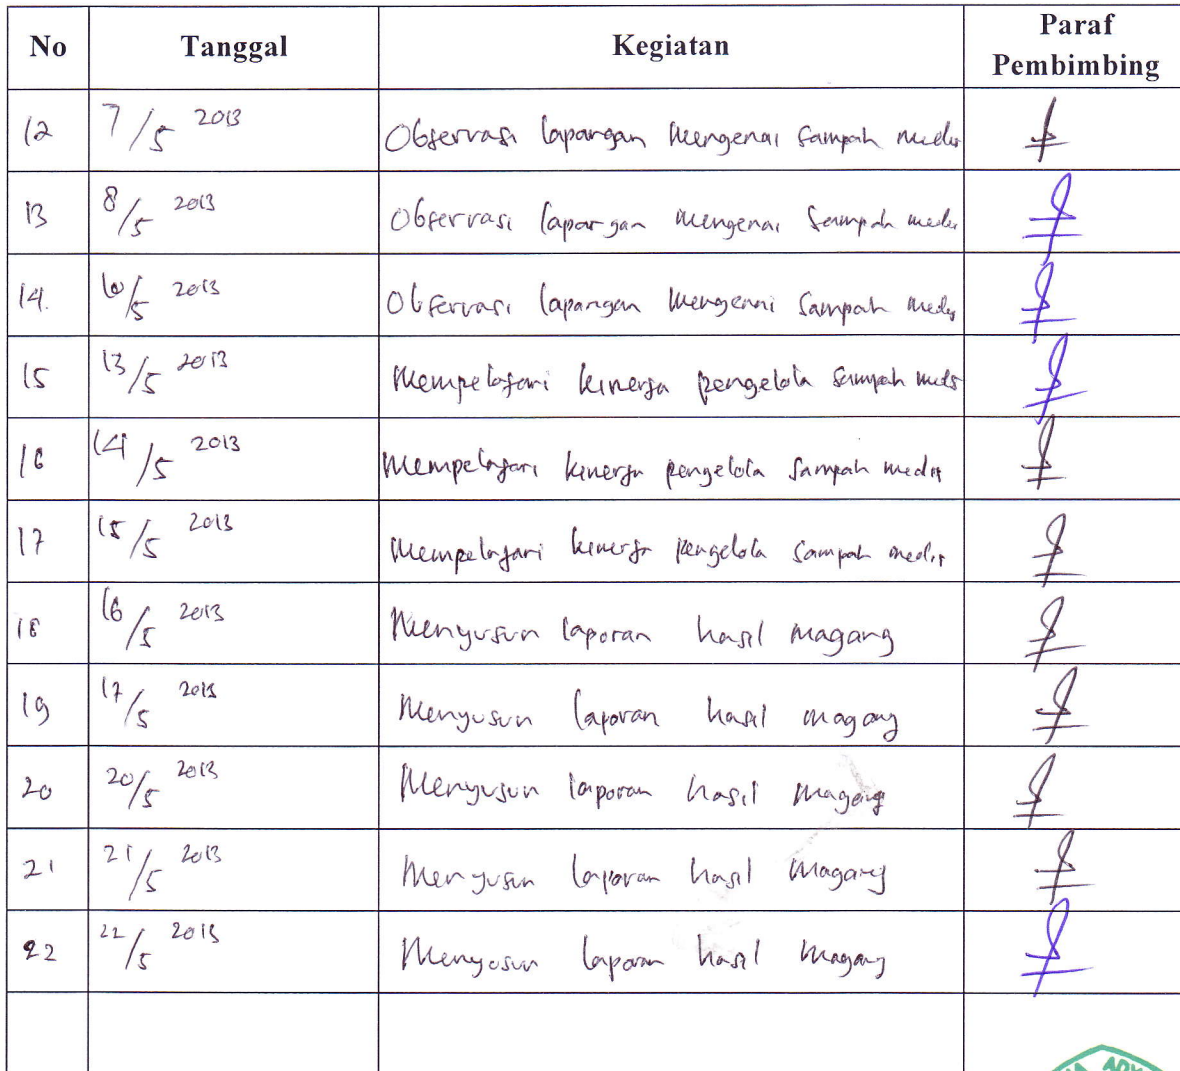 No Tanggal Kegiatan Paraf Pembimbing
12 7/5 2013 Observasi lapangan mengenai sampah medis
13 8/5 2013 Observasi lapangan mengenai sampah medis
14. 10/5 2013 Observasi lapangan mengenai sampah medis
15 13/5 2013 Mempelajari kinerja pengelola sampah medis
16 14/5 2013 Mempelajari kinerja pengelola sampah medis
17 15/5 2013 Mempelajari kinerja pengelola sampah medis
18 16/5 2013 Menyusun laporan hasil magang
19 17/5 2013 Menyusun laporan hasil magang
20 20/5 2013 Menyusun laporan hasil magang
21 21/5 2013 Menyusun laporan hasil magang
22 22/5 2013 Menyusun laporan hasil magang